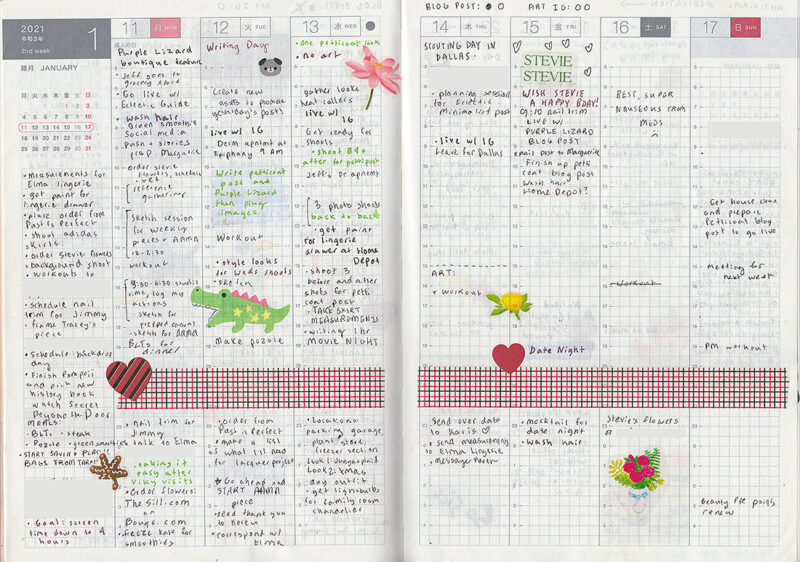 BLOG POST: ● O ART IG: OO
2021
令和3年
2nd week
1
睦月 JANUARY
月 火 水 木 金 土 日
1 2 3
4 5 6 7 8 9 10
11 12 13 14 15 16 17
18 19 20 21 22 23 24
25 26 27 28 29 30 31
• measurements for
Elma lingerie
• get paint for
lingerie drawer
• place order from
Past is Perfect
• shoot adidas
skirts
• order Stevie flowers
• background shoot
• workouts to
• schedule nail
trim for Jimmy
• frame Tracey's
piece
• Schedule backdrop
day
• Finish Pompeii
and pick new
history book
watch Secret
Beyond the Door
MEALS:
BLTs • steak
Pozole • green smoothies
START SAVING PLASTIC
BAGS FROM
• Goal: screen
time down to 4
hours
11 月 MON
成人の日
Purple Lizard
boutique feature
• Jeff goes to
grocery store
• Go live w/
Eclectic Guide
• wash hair
green smoothie
Social media
Push + stories
prep Marguerite
order Stevie
flowers,
reference
gathering
Sketch session
for weekly
pieces + AAMA
12-2:30
workout
3:30-6:30 studio
time, log my
actions
sketch for
• sketch for AAMA
BLTs for
dinner
• nail trim for
Jimmy
• talk to Elma
• taking it
easy after
Viky visits
• Order flowers:
The Sill.com
or
Bouqs.com
• freeze kale for
smoothies
12 火 TUE
Writing Day
Create new
assets to promote
yesterday's posts
live w/ IG
Derm apntmt at
Epiphany 9 AM
Write petticoat
post and
Purple Lizard
then plug
images
Workout
• style looks
for Weds shoots
• sketch
make pozole
• order from
Past is Perfect
• make a list
of what I'll need
for lacquer project
• Go ahead and
START AAMA
piece
• send thank you
to Karen
• correspond w/
Elma
13 水 WED
• One petticoat look
• no art
gather looks
heat rollers
live w/
IG
Got ready for
shoots
• shoot B4 +
after for petti post
Jeff's Dr apntmt
3 photo shoots
back to back
• get paint
for lingerie
drawer at Home
Depot
• shoot 3
before and after
shots for petti
coat post
• TAKE SKIRT
MEASUREMENTS
• writing the
MOVIE NIGHT
• Locations:
parking garage,
plant store,
freezer section
Look 1: Jumper plaid
Look 2: Xmas
day outfit
• get lightbulbs
for family room
chandelier
14 木 THU
SCOUTING DAY IN
DALLAS
• planning session
for Eclectic
Minimalist post
• live w/ IG
leave for Dallas
ART:
• workout
Send over data
to Karis ♡
• send measurements
to Elma Lingerie
• Message Karen
15 金 FRI
STEVIE
STEVIE
WISH STEVIE
A HAPPY BDAY!
09:10 nail trim
LIVE W/
PURPLE LIZARD
BLOG POST
email post to Marguerite
Finish up petti
coat blog post
Wash hair
Home Depot?
Date Night
• mocktail for
date night
• wash hair
16 土 SAT
REST, SUPER
NAUSEOUS FROM
MEDS
• Workout
Stevie's flowers
17 日 SUN
Get house clean
and prepare
Petticoat blog
post to go live
meeting for
next week
PM workout
Beauty Pie points
renew